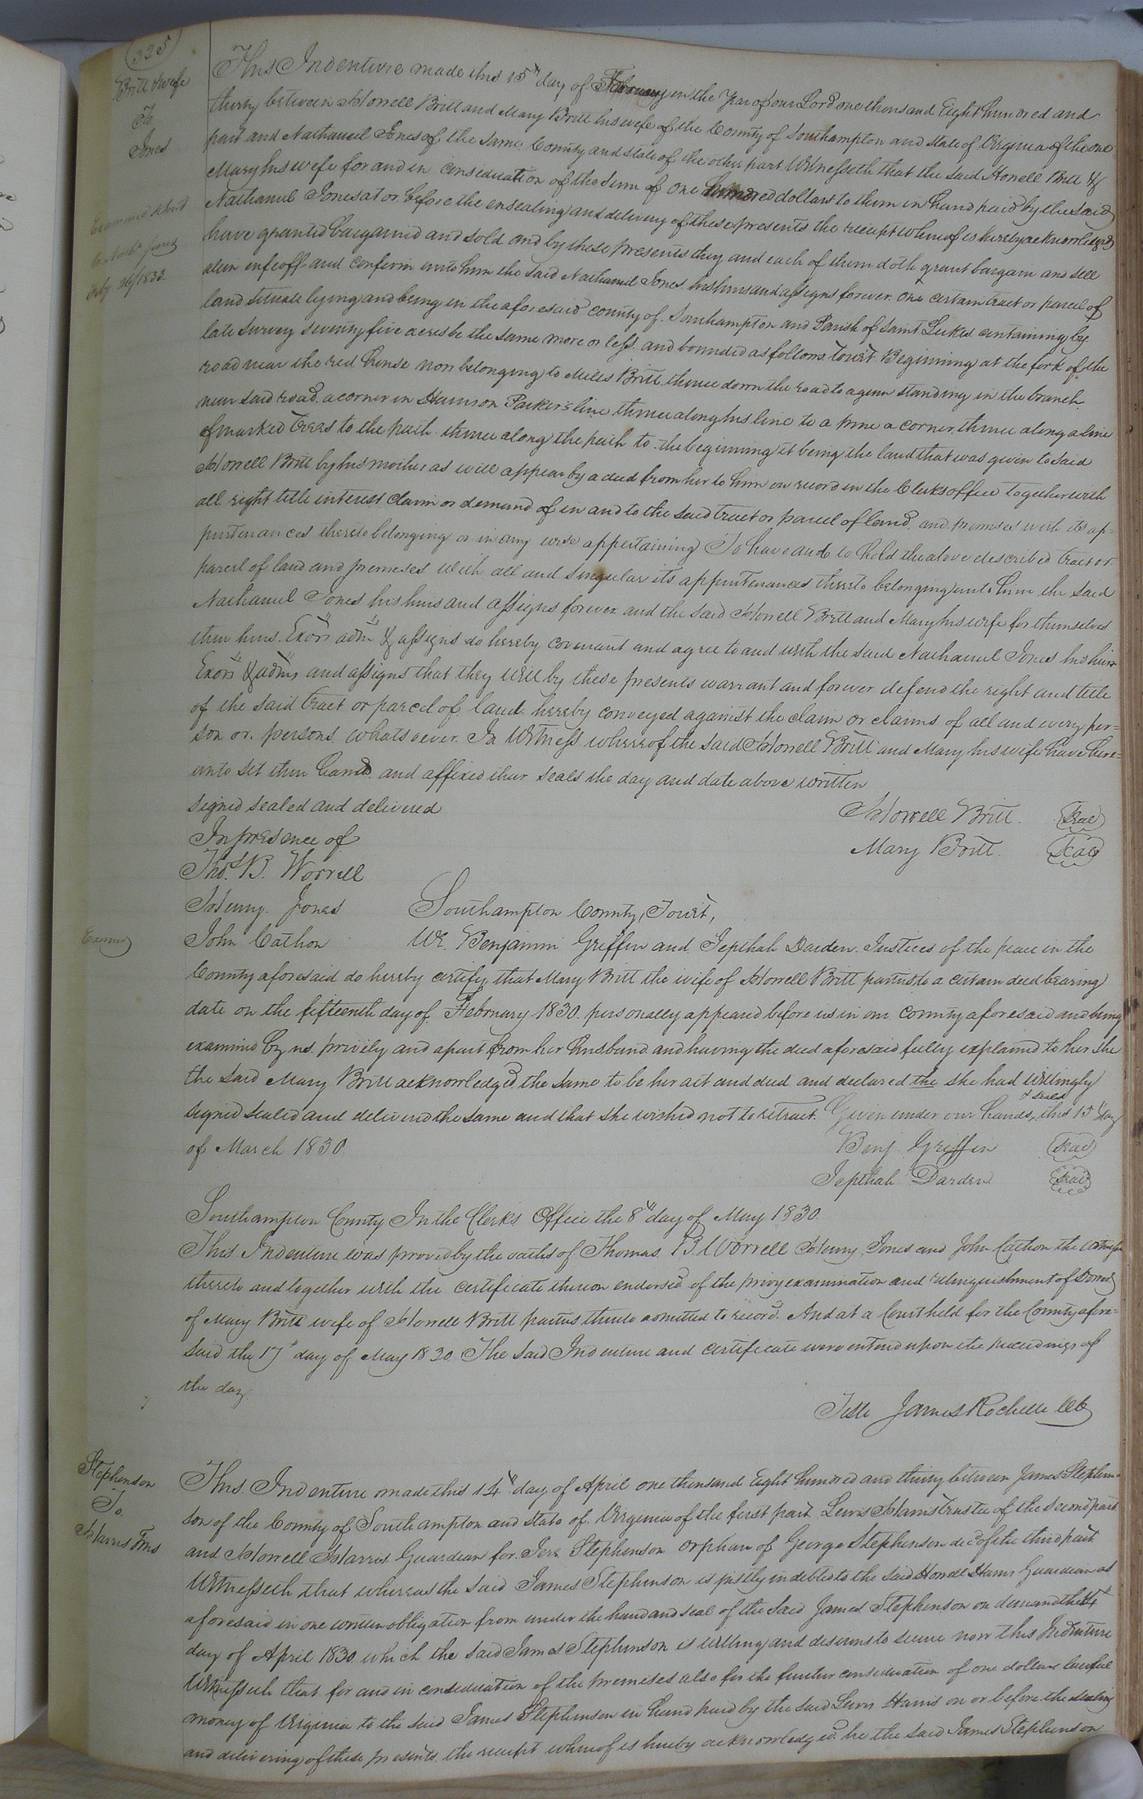 325
Britt & wife
To
Jones
This Indenture made this 15th day of February in the Year of our Lord one thousand Eight hundred and
thirty between Howell Britt and Mary Britt his wife of the County of Southampton and State of Virginia of the one
part and Nathaniel Jones of the same County and state of the other part Witnesseth that the said Howell Britt &
Mary his wife for and in consideration of the sum of one hundred dollars to them in hand paid by the said
Nathaniel Jones at or before the ensealing and delivery of these presents the receipt whereof is hereby acknowledged
have granted bargained and sold and by these presents they and each of them doth grant bargain and sell
alien enfeoff and confirm unto him the said Nathaniel Jones his heirs and assigns forever. One certain tract or parcel of
land situate lying and being in the aforesaid county of Southampton and Parish of Saint Lukes containing by
late survey seventy five acres be the same more or less and bounded as follows Towit Beginning at the fork of the
road near the red house now belonging to Miles Britt, thence down the road to a gum standing in the branch
near said road, a corner in Harrison Parker's line thence along his line to a pine a corner, thence along a line
of marked trees to the path thence along the path to the beginning it being the land that was given to said
Howell Britt by his mother as will appear by a deed from her to him on record in the Clerks office together with
all right title interest claim or demand of in and to the said tract or parcel of land, and premises with its ap-
purtenances thereto belonging or in any wise appertaining To have and to hold the above described tract or
parcel of land and premises with all and singular its appurtenances thereto belonging unto him the said
Nathaniel Jones his heirs and assigns forever and the said Howell Britt and Mary his wife for themselves
their heirs. Exors admrs & assigns do hereby covenant and agree to and with the said Nathaniel Jones his heirs
Exors & admrs and assigns that they will by these presents warrant and forever defend the right and title
of the said tract or parcel of land hereby conveyed against the claim or claims of all and every per-
son or persons whatsoever. In Witness whereof the said Howell Britt and Mary his wife have here-
unto set their hands, and affixed their seals the day and date above written
signed sealed and delivered
In presence of
Howell Britt Seal
Mary Britt Seal
Thos. B. Worrell
Henry Jones
John Cathon
Southampton County, Towit,
We Benjamin Griffin and Jepthah Darden Justices of the peace in the
County aforesaid do hereby certify that Mary Britt the wife of Howell Britt parties to a certain deed bearing
date on the fifteenth day of February 1830 personally appeared before us in our county aforesaid and being
examined by us privily and apart from her husband and having the deed aforesaid fully explained to her she
the said Mary Britt acknowledged the same to be her act and deed and declared the she had willingly
signed sealed and delivered the same and that she wished not to retract. Given under our hands, & seals this 15th day
of March 1830
Benj Griffin Seal
Jepthah Darden Seal
Southampton County In the Clerks Office the 8th day of May 1830
This Indenture was proved by the oaths of Thomas B Worrell Henry Jones and John Cathon the witnesses
thereto and together with the certificate thereon endorsed of the privy examination and relinquishment of Dower
of Mary Britt wife of Howell Britt parties thereto admitted to record. And at a Court held for the County afore-
said the 17th day of May 1830 The said Indenture and certificate were entered upon the proceedings of
the day.
Teste James Rochelle CC
Stephenson
To
Harris Trus
This Indenture made this 14th day of April one thousand Eight hundred and thirty between James Stephen-
son of the County of Southampton and State of Virginia of the first part Lewis Harris trustee of the second part
and Howell Harris Guardian for Stephenson orphan of George Stephenson decd of the third part
Witnesseth that whereas the said James Stephenson is justly indebted to the said Howell Harris Guardian as
aforesaid in one written obligation from under the hand and seal of the said James Stephenson on demand the
day of April 1830 which the said James Stephenson is willing and desirous to secure now this Indenture
Witnesseth that for and in consideration of the premises also for the further consideration of one dollar lawful
money of Virginia to the said James Stephenson in hand paid by the said Lewis Harris on or before the sealing
and delivering of these presents, the receipt whereof is hereby acknowledged, he the said James Stephenson